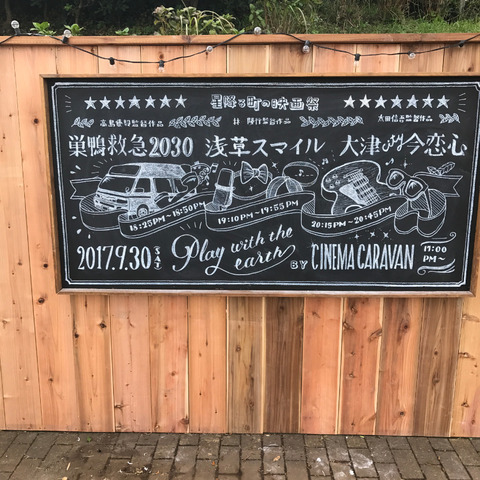 ★★★★★★★ 星降る町の映画祭 ★★★★★★★
監督作品 監督作品 太田信吾監督作品
巣鴨救急2030 浅草スマイル 大津City今恋心
18:25PM~18:50PM 19:10PM~19:55PM 20:15PM~20:45PM
2017.9.30 SAT Play with the earth BY CINEMA CARAVAN 17:00 PM~